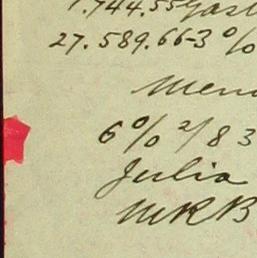 1.744.55
27.589.66-3%
6% 2/8 3
Julia
MRB